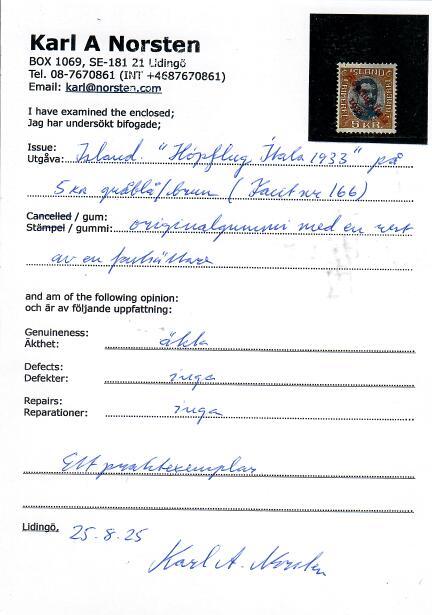 Karl A Norsten
BOX 1069, SE-181 21 Lidingö
Tel. 08-7670861 (INT +4687670861)
Email: karl@norsten.com
I have examined the enclosed;
Jag har undersökt bifogade;
Issue:
Utgåva: Island. "Hópflug Ítala 1933" på
5 kr gråblå/brun (Facit nr 166)
Cancelled / gum:
Stämpel / gummi: originalgummi med en rest
av en
and am of the following opinion:
och är av följande uppfattning:
Genuineness:
Äkthet: äkta
Defects:
Defekter: inga
Repairs:
Reparationer: inga
Ett praktexemplar
Lidingö, 25-8-25
Karl A. Norsten
ISLAND
5 KR.